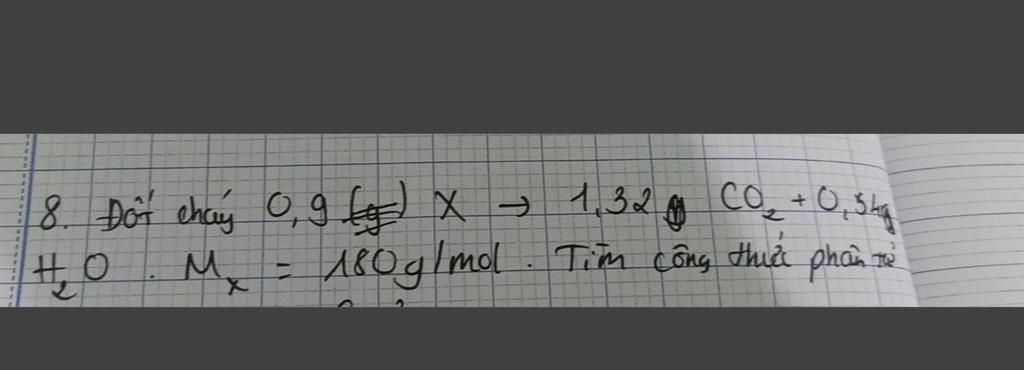 8. Đốt cháy 0,9 (g) X → 1,32 g CO₂ + 0,54g
H₂O. Mₓ = 180g/mol. Tìm công thức phân tử